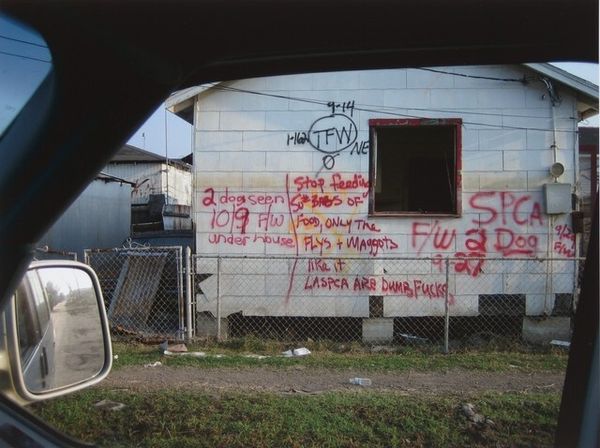 9-14
1-162
TFW
NE
0
2 dog seen
10/9 F/W
under house
Stop feeding
50 # BAGS OF
FOOD, ONLY THE
FLYS + MAGGOTS
like it
LASPCA ARE DUMB FUCKS
SPCA
F/W 2 Dog
9-27
F/W